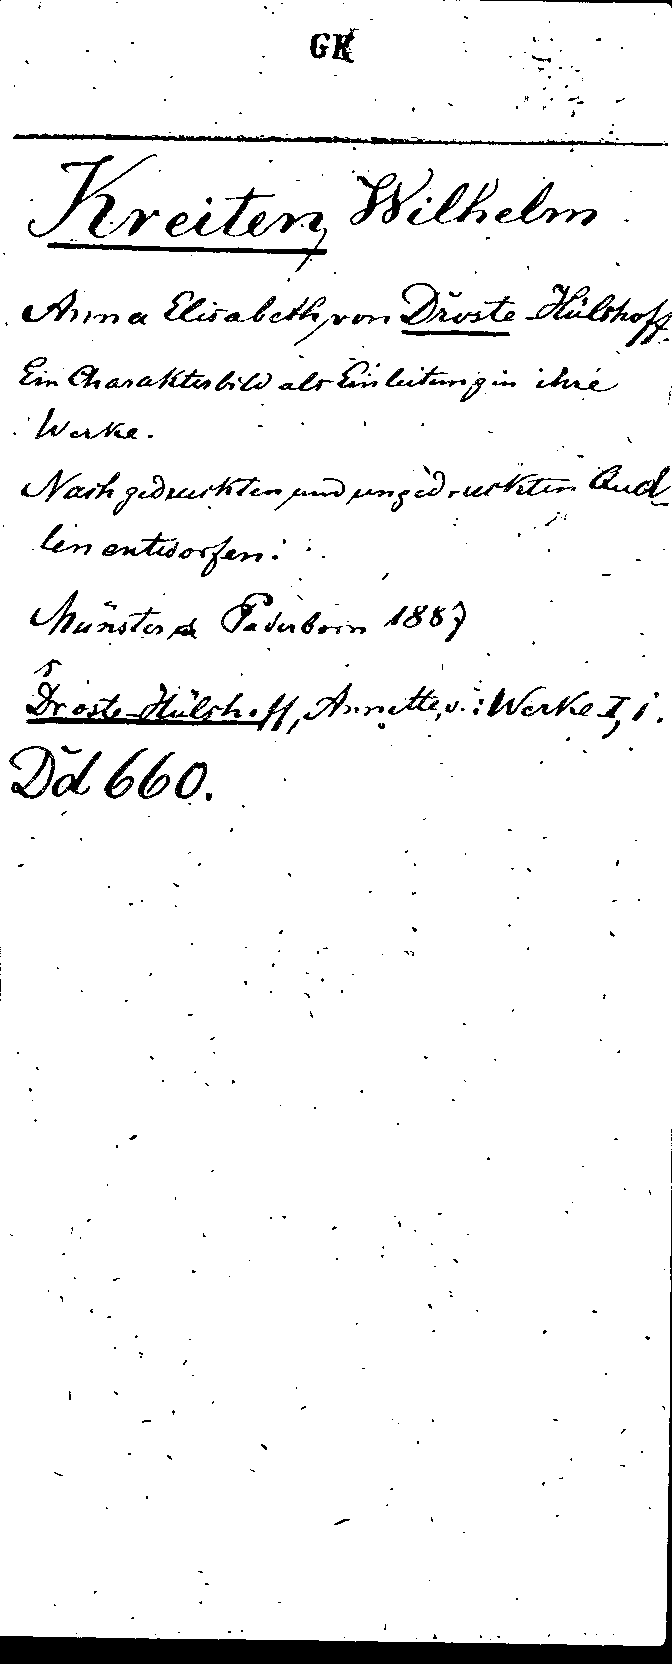 GK
Kreiten, Wilhelm
Anna Elisabeth von Droste-Hülshoff.
Ein Charakterbild als Einleitung in ihre
Werke.
Nach gedruckten und ungedruckten Quel-
len entworfen.
Münster & Paderborn 1887
Droste-Hülshoff, Annette v.: Werke I, 1.
Dd 660.